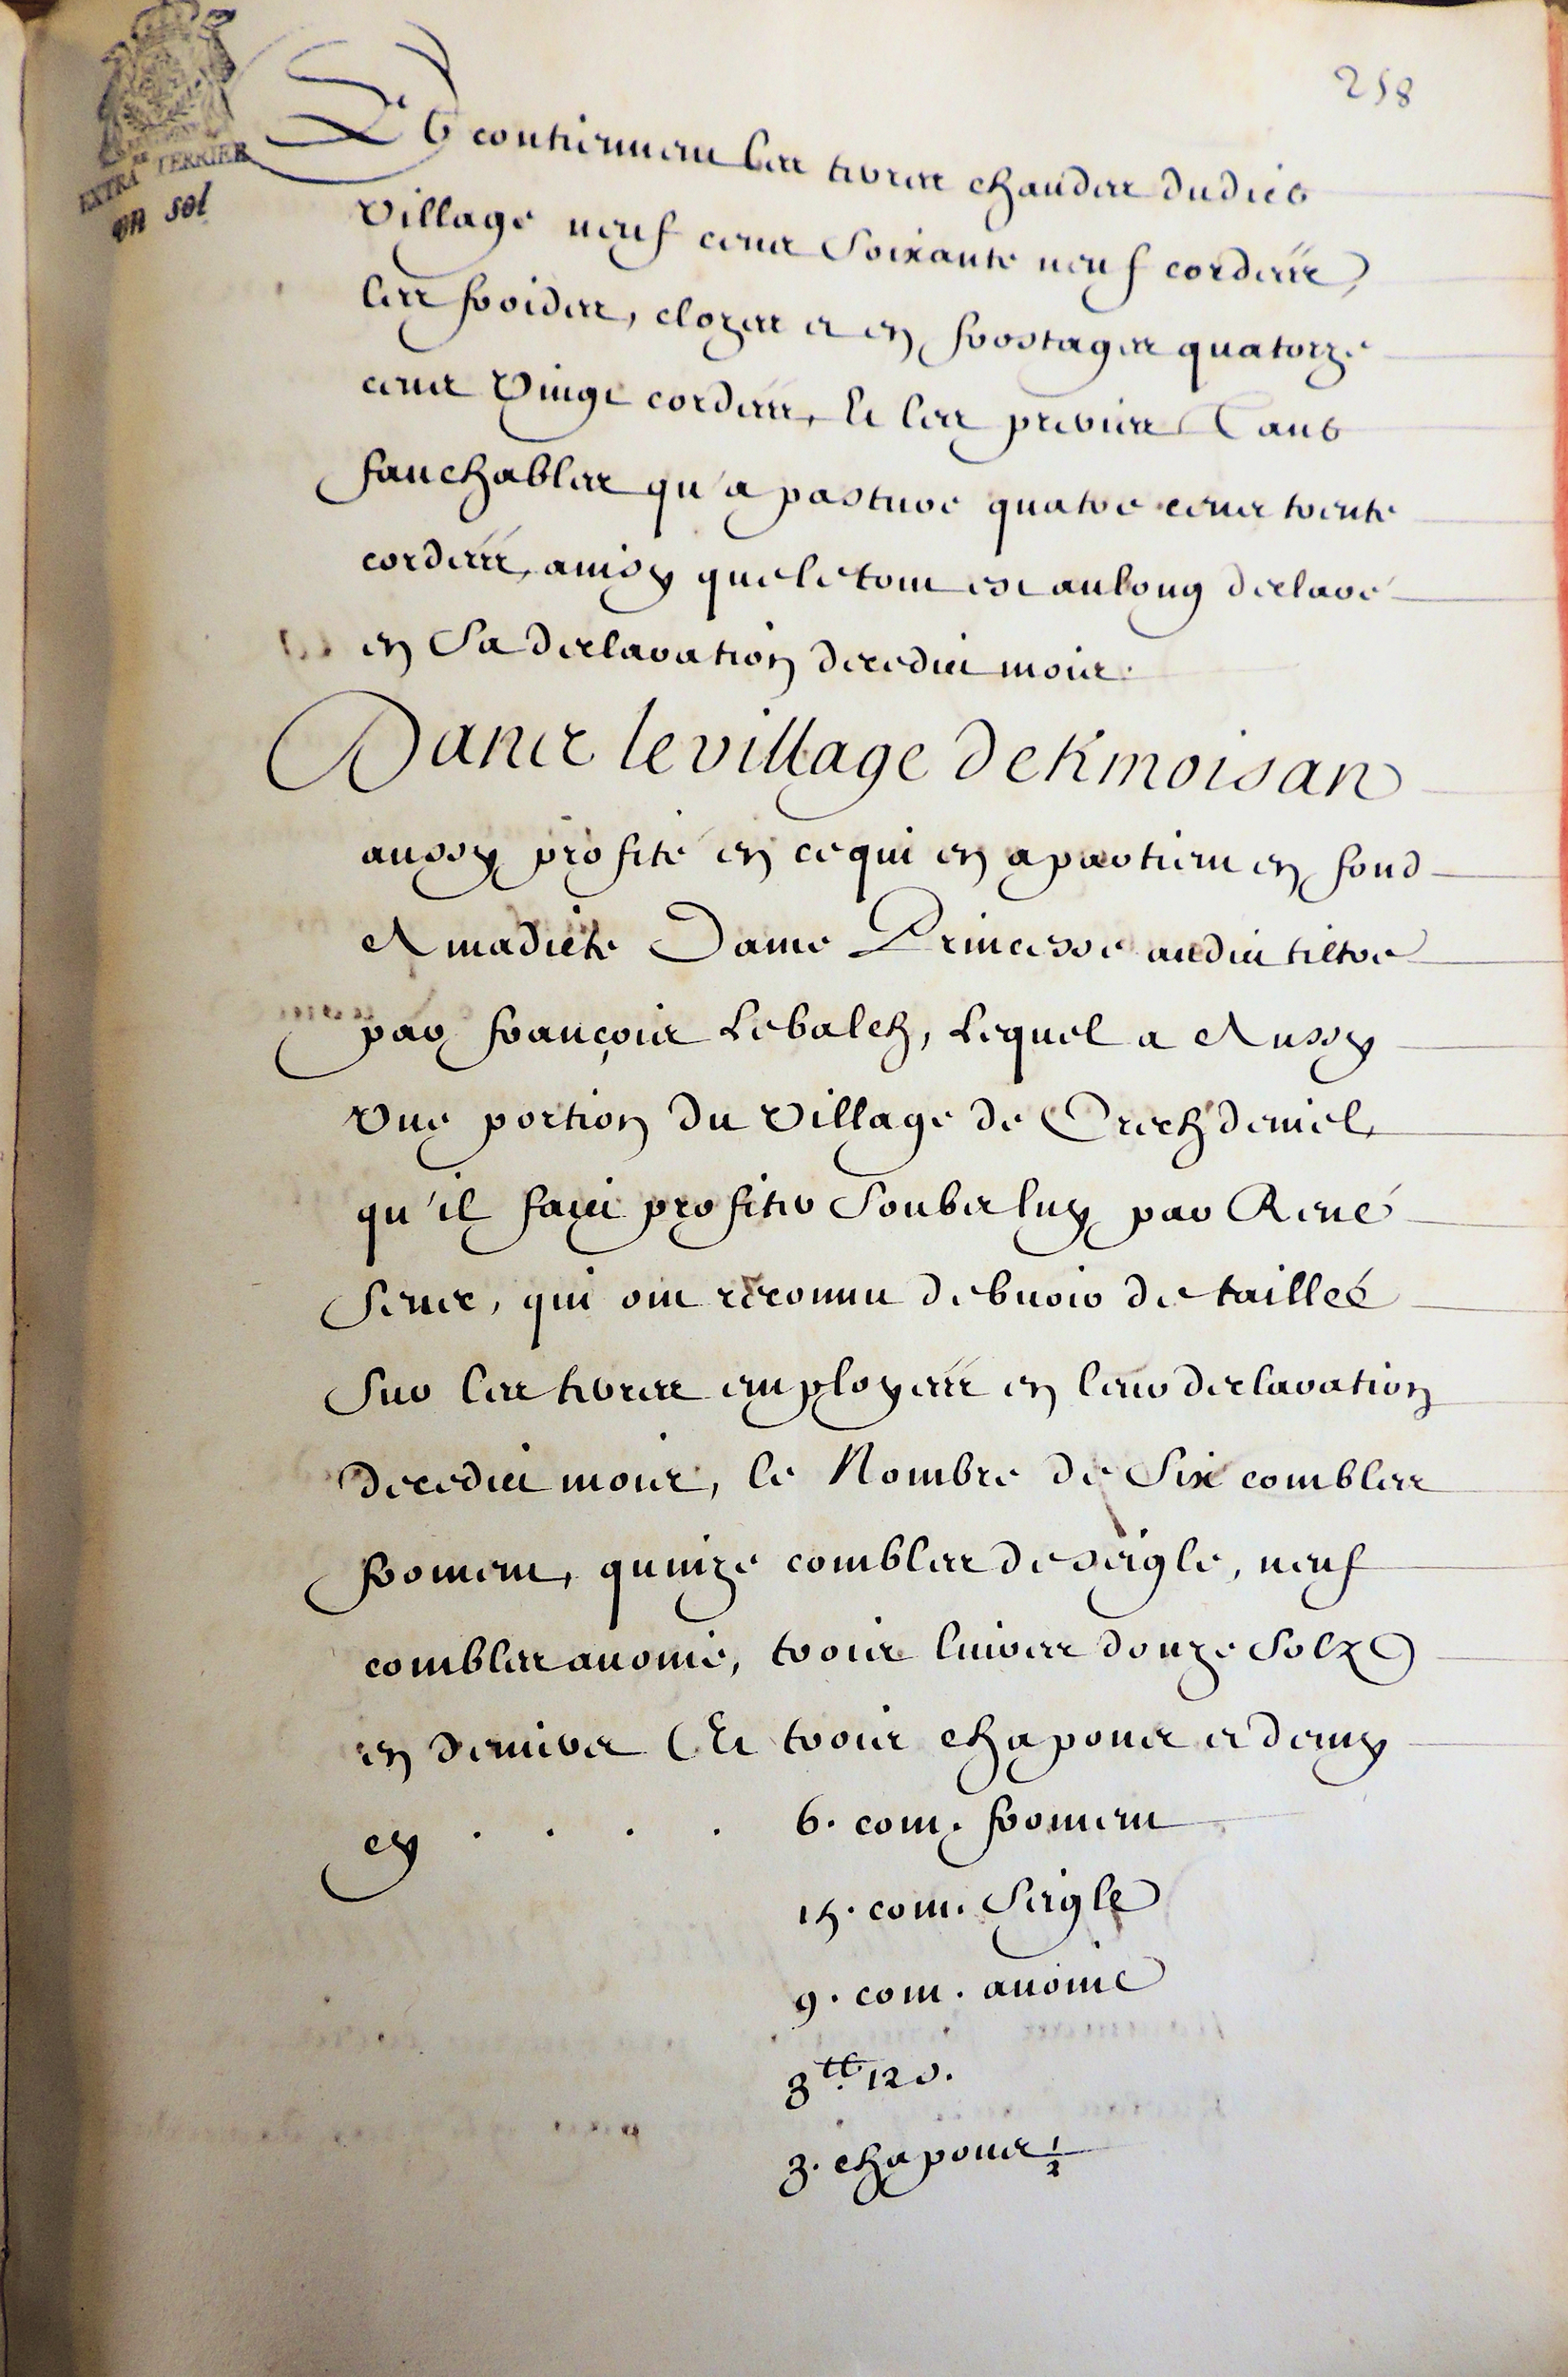 258
EXTRA TERRIER
un sol
Et contiennent les terres chaudes dudict
village neuf cents soixante neuf cordées,
les froides, closes et en frostages quatorze
cents vingt cordées, Et les preries Tant
fauchables qu'a pasture quatre cents trente
cordées, ainsy que le tout est au long declaré
en Sa declaration de cedit mois.
Dans le village de Kmoisan
aussy profité en ce qui en apartient en fond
A madicte Dame Princesse audit tiltre
par François Lebalch, Lequel a Aussy
vne portion du village de Crechdeniel,
qu'il faict profiter Soubs luy par René
, qui ont reconnu debuoir de taillée
Sur les terres employées en leur declaration
de cedit mois, le Nombre de Six combles
froment, quinze combles de seigle, neuf
combles auoine, trois liures douze Solz
en deniers Et trois chapons et demy
cy . . . . 6. com. froment
15. com. Seigle
9. com. auoine
3tt. 12 s.
3. chapons 1/2